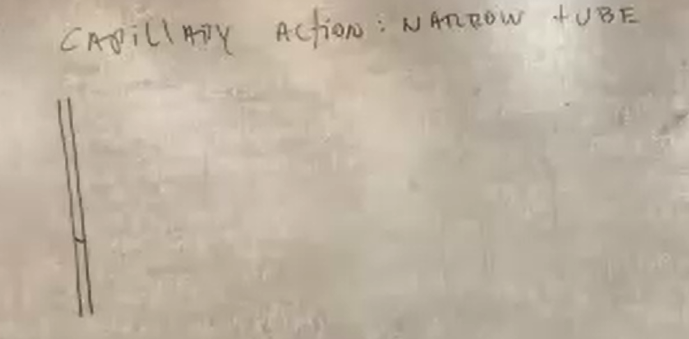 CAPILLARY ACTION: NARROW tUBE